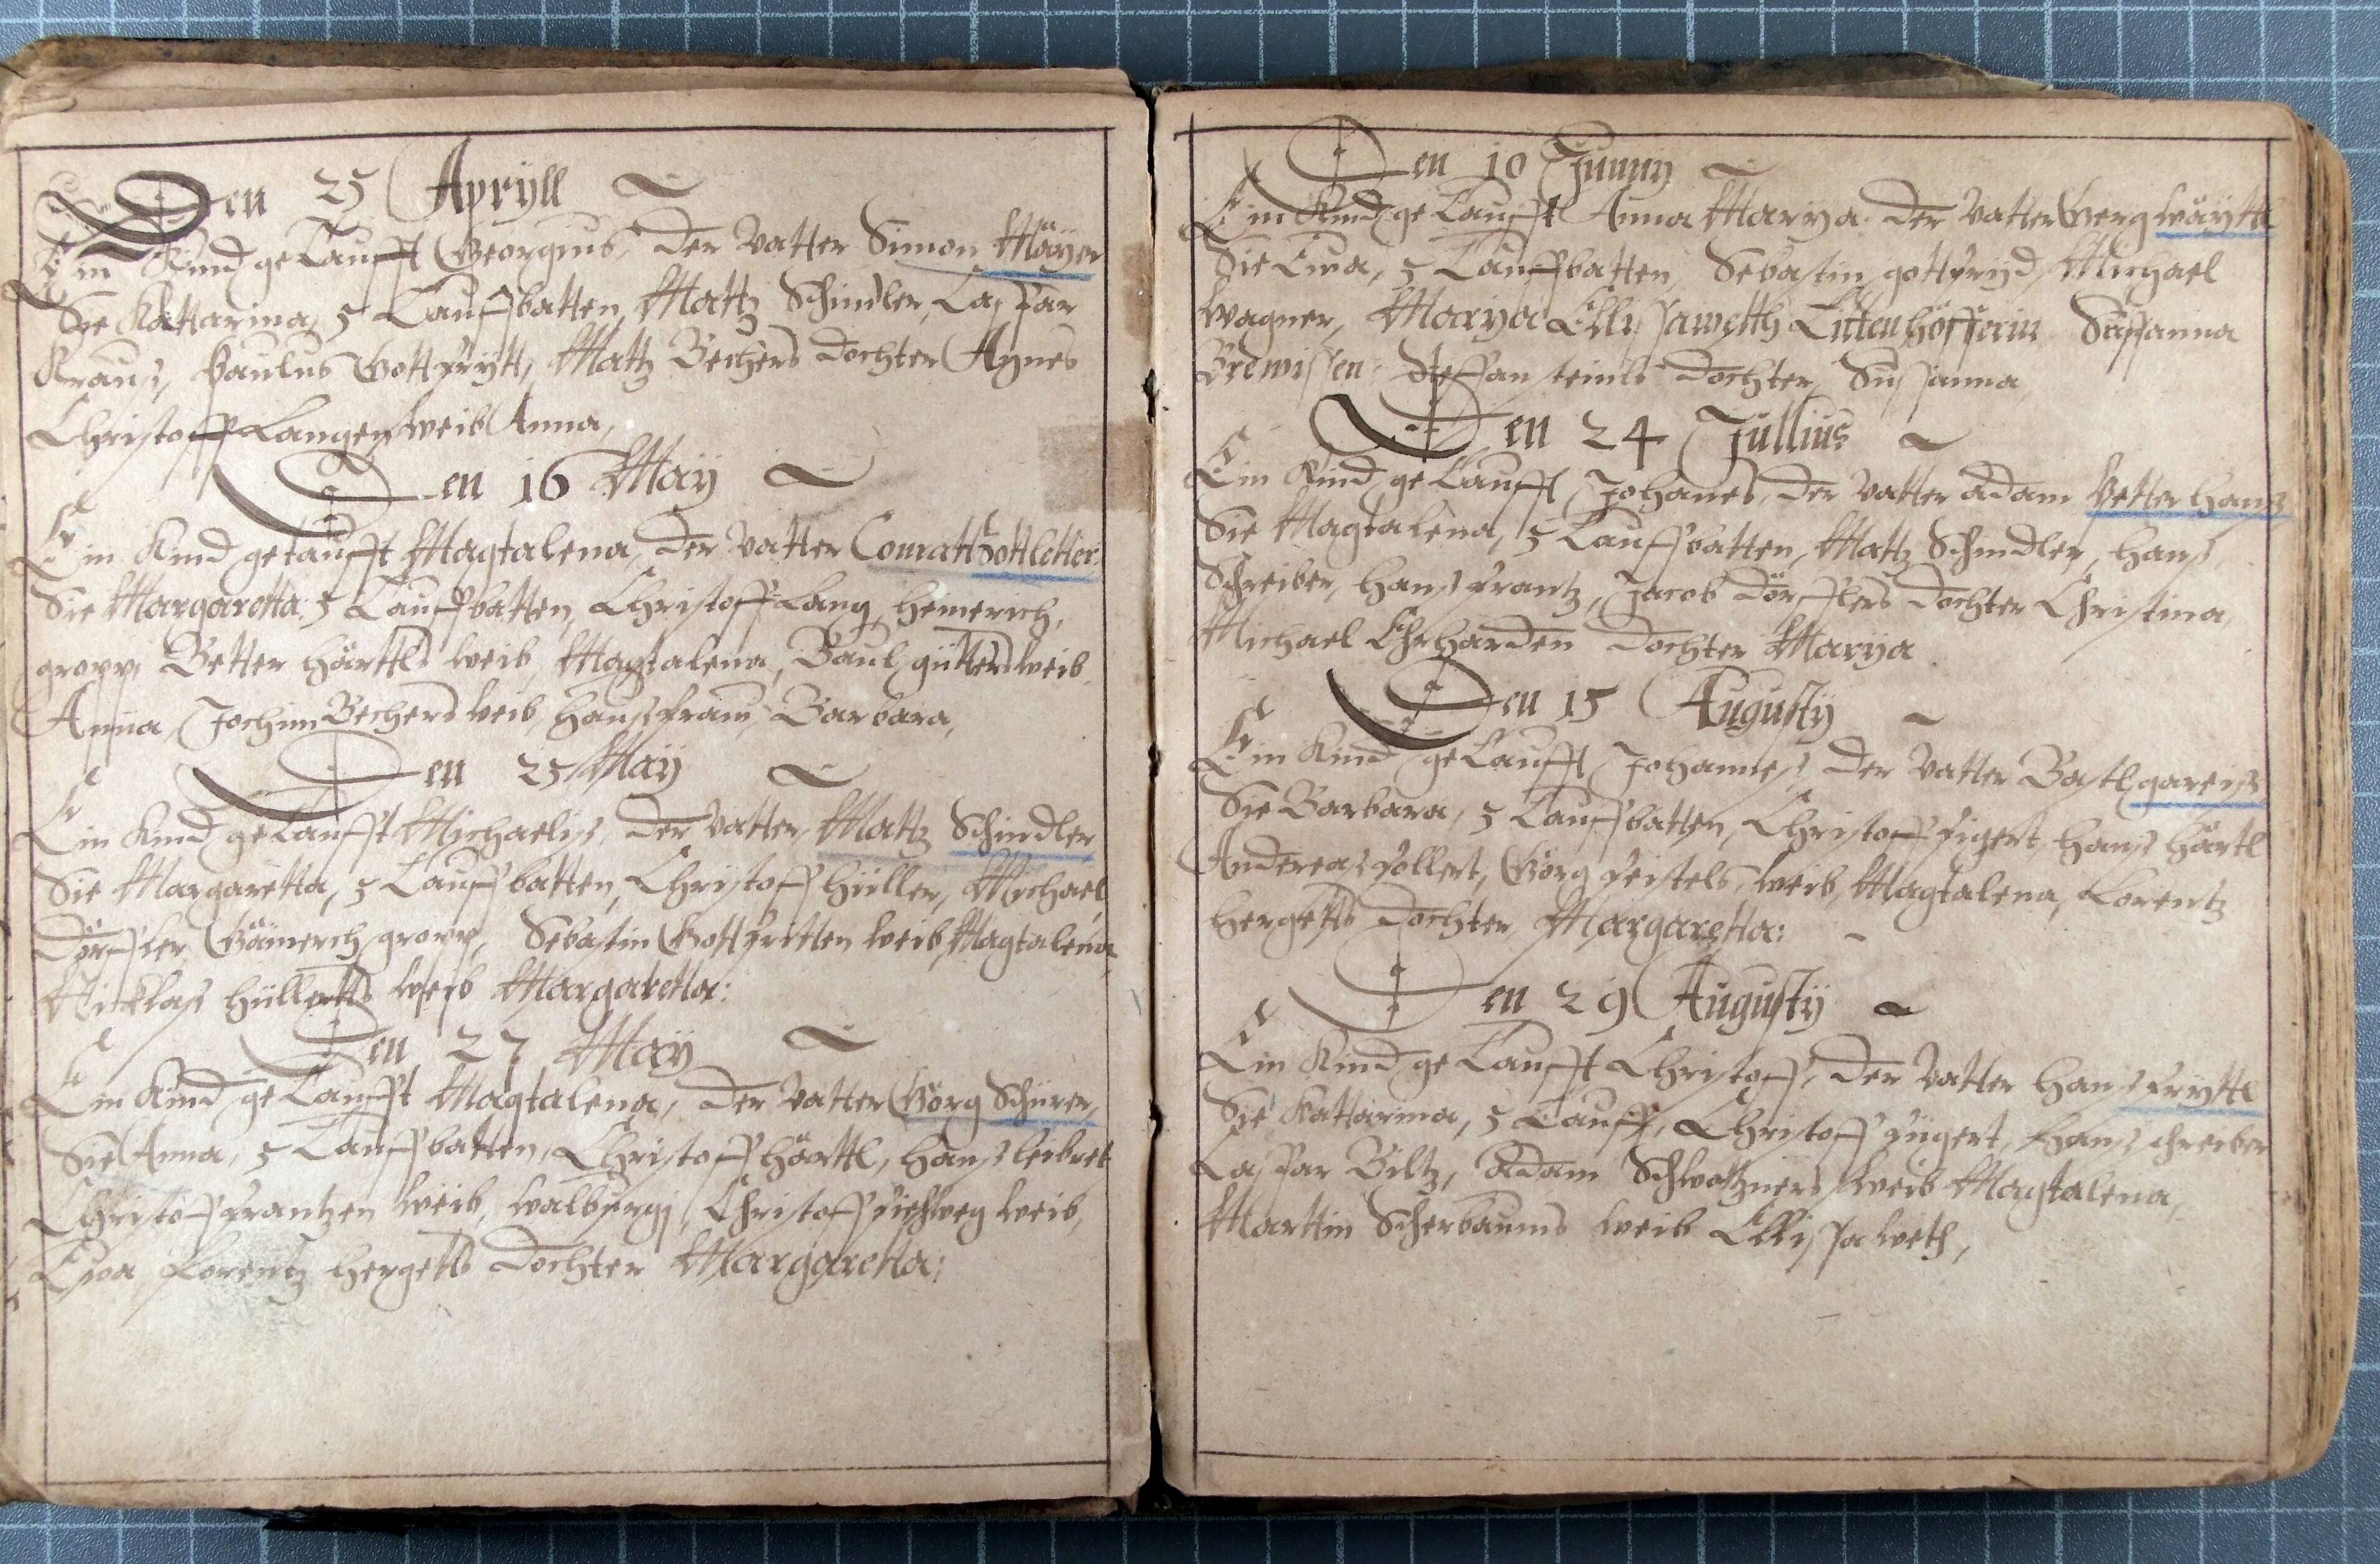 Den 25 Apryll
Ein Kind getaufft Georgius, der Vatter Simon Mäyer
Sie Kattarina, 5 Tauffbatten, Mattz Schindler, Caspar
Krauss, Paulus Gottfrytt, Mattz Bechers dochter Agnes
Christoff Langen weib Anna,
Den 16 May
Ein Kind getaufft Magtalena, der Vatter Conratt Zottletter
Sie Margaretta: 5 Tauffbatten, Christoff Lang, Hemerich,
gropp, Better Härttls weib, Magtalena, Baul gütters weib
Anna, Jochim Bechers weib, Hanss fram, Barbara,
Den 25 Maÿ
Ein Kind getaufft Michaeliss, der Vatter, Mattz Schindler
Sie Margaretta, 5 Tauffbatten, Christoff Hüller, Michael
Dörffler, Hämerich gropp, Sebastin Gottfritten weib, Magtalena
Nicklass Hüllertts weib Margaretta:
Den 27 May
Ein Kind getaufft Magtalena, der Vatter Görg Schürer,
Sie Anna, 5 Tauffbatten, Christoff Härttl, Hanss leibret
Christoff frantzen weib, walburgj, Christoff fiehweg weib,
Eva, Lorentz Hergetts dochter Margaretta:
Den 10 Junny
Ein Kind getaufft Anna Marya. der Vatter Gerg wäyttl
Sie Eva, 5 Tauffbatten, Sebastin gottfryd, Michael
wagner, Marya Ellisawetth Littenhöfferin, Sussanna
Steffan steinls dochter, Sussanna
Den 24 Jullius
Ein Kind getaufft Johanes, der Vatter Adam Betterhans
Sie Magtalena, 5 Tauffbatten, Mattz Schindler, Hanss
Schreiber, Hanss frantz, Jacob Dörfflers dochter Christina,
Michael Ehrharden dochter Marya
Den 15 Augusty
Ein Kind getaufft Johanness, der Vatter Bastl gareiss
Sie Barbara, 5 Tauffbatten, Christoff figert, Hanss Härtl
Andereas follert, Görg feistels, weib, Magtalena, Lorentz
Hergetts dochter Margaretta:
Den 29 Augusty
Ein Kind getaufft Christoff, der Vatter Hanss fryttl
Sie Kattarina, 5 Tauff, Christoff fügert, Hanss chreiber
Caspar Biltz, Adam Schwotzners weib Magtalena,
Marttin Scherbaums weib Ellissaweth,